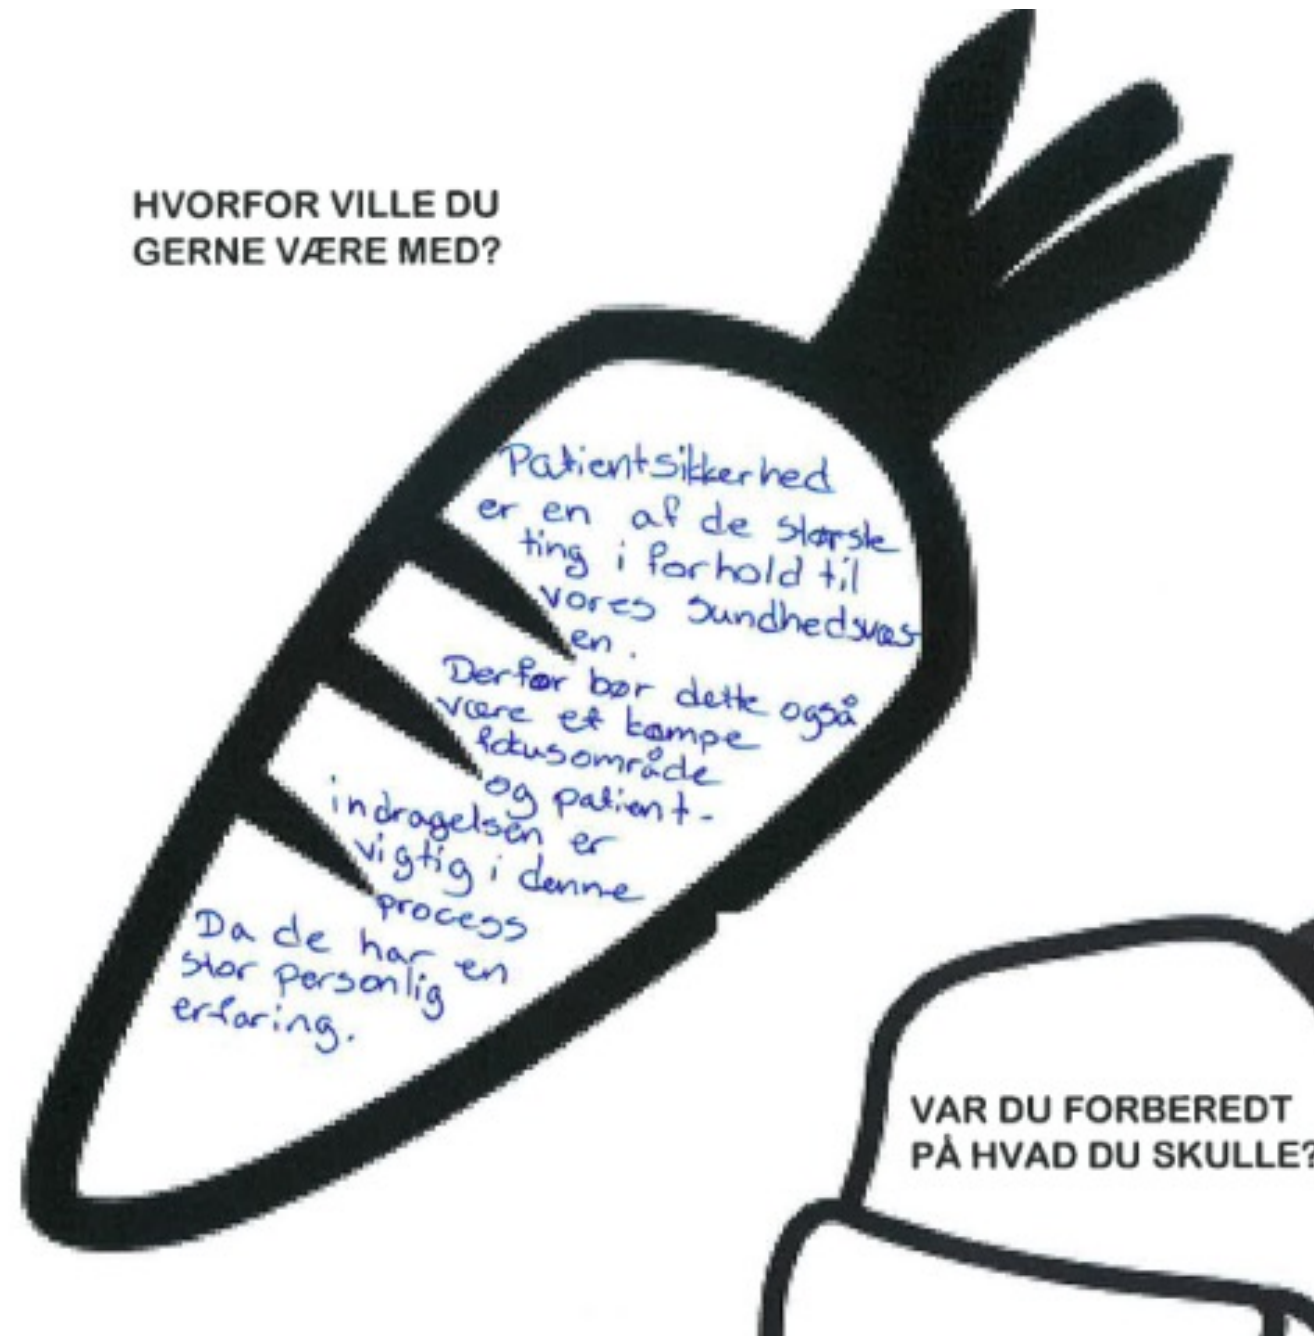 HVORFOR VILLE DU
GERNE VÆRE MED?
Patientsikkerhed
er en af de største
ting i forhold til
vores sundhedsvæs
en.
Derfor bør dette også
være et kæmpe
fokusområde
og patient-
indragelsen er
vigtig i denne
process
Da de har en
stor personlig
erfaring.
VAR DU FORBEREDT
PÅ HVAD DU SKULLE?